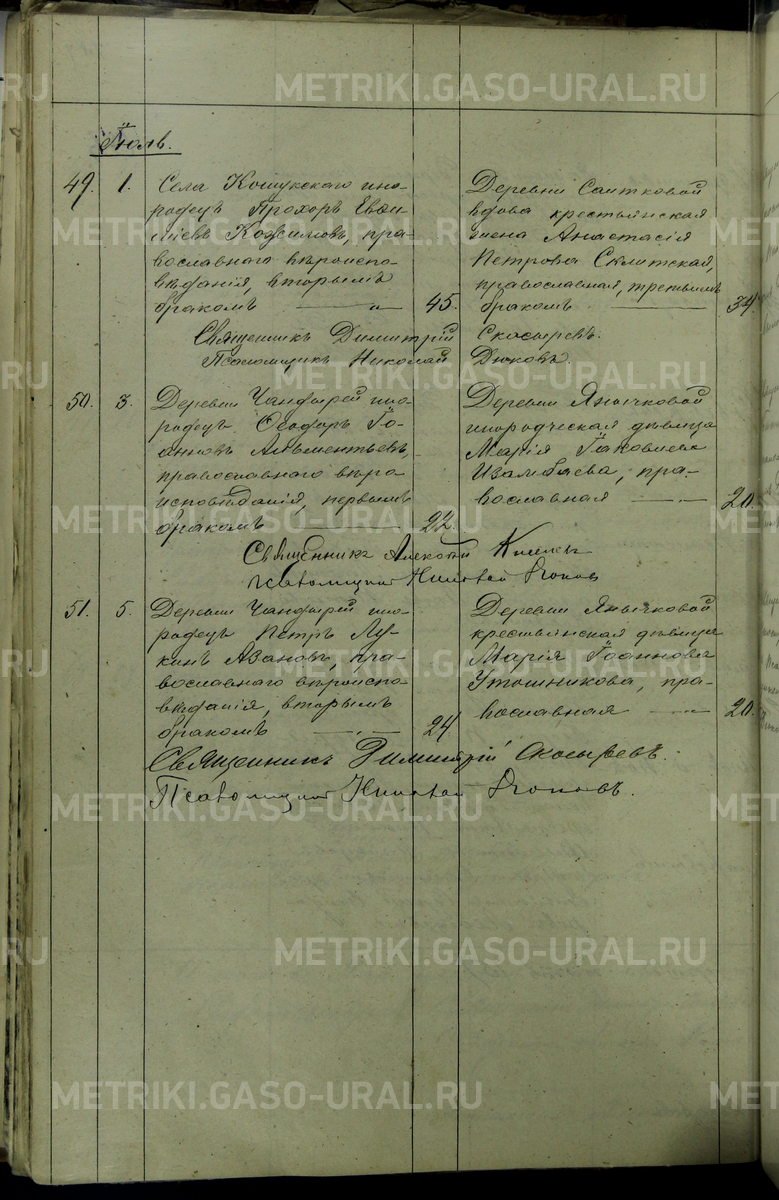 Іюль.
49. 1. Села Кошукскаго ино-
родецъ Прохоръ Евѳи-
міевъ Кожимовъ, пра-
вославнаго вѣроиспо-
вѣданія, вторымъ
бракомъ 45.
Деревни Саитковой
вдова крестьянская
жена Анастасія
Петрова
православная, третьимъ
бракомъ 34.
Священникъ Димитрій Скосыревъ.
Псаломщикъ Николай
50. 3. Деревни Чандырей ино-
родецъ Ѳеодоръ Іо-
анновъ
православнаго вѣро
исповѣданія, первымъ
бракомъ 22.
Деревни Янычковой
инородческая дѣвица
Марія Іаковлева
Изамбаева, пра-
вославная 20.
Священникъ Алексѣй
Псаломщикъ Николай
51. 5. Деревни Чандырей ино-
родецъ Петръ Лу-
кинъ Азановъ, пра-
вославнаго вѣроиспо
вѣданія, вторымъ
бракомъ 24
Деревни Янычковой
крестьянская дѣвица
Марія Іоаннова
Утошникова, пра-
вославная 20.
Священникъ Димитрій Скосыревъ.
Псаломщикъ Николай
METRIKI.GASO-URAL.RU